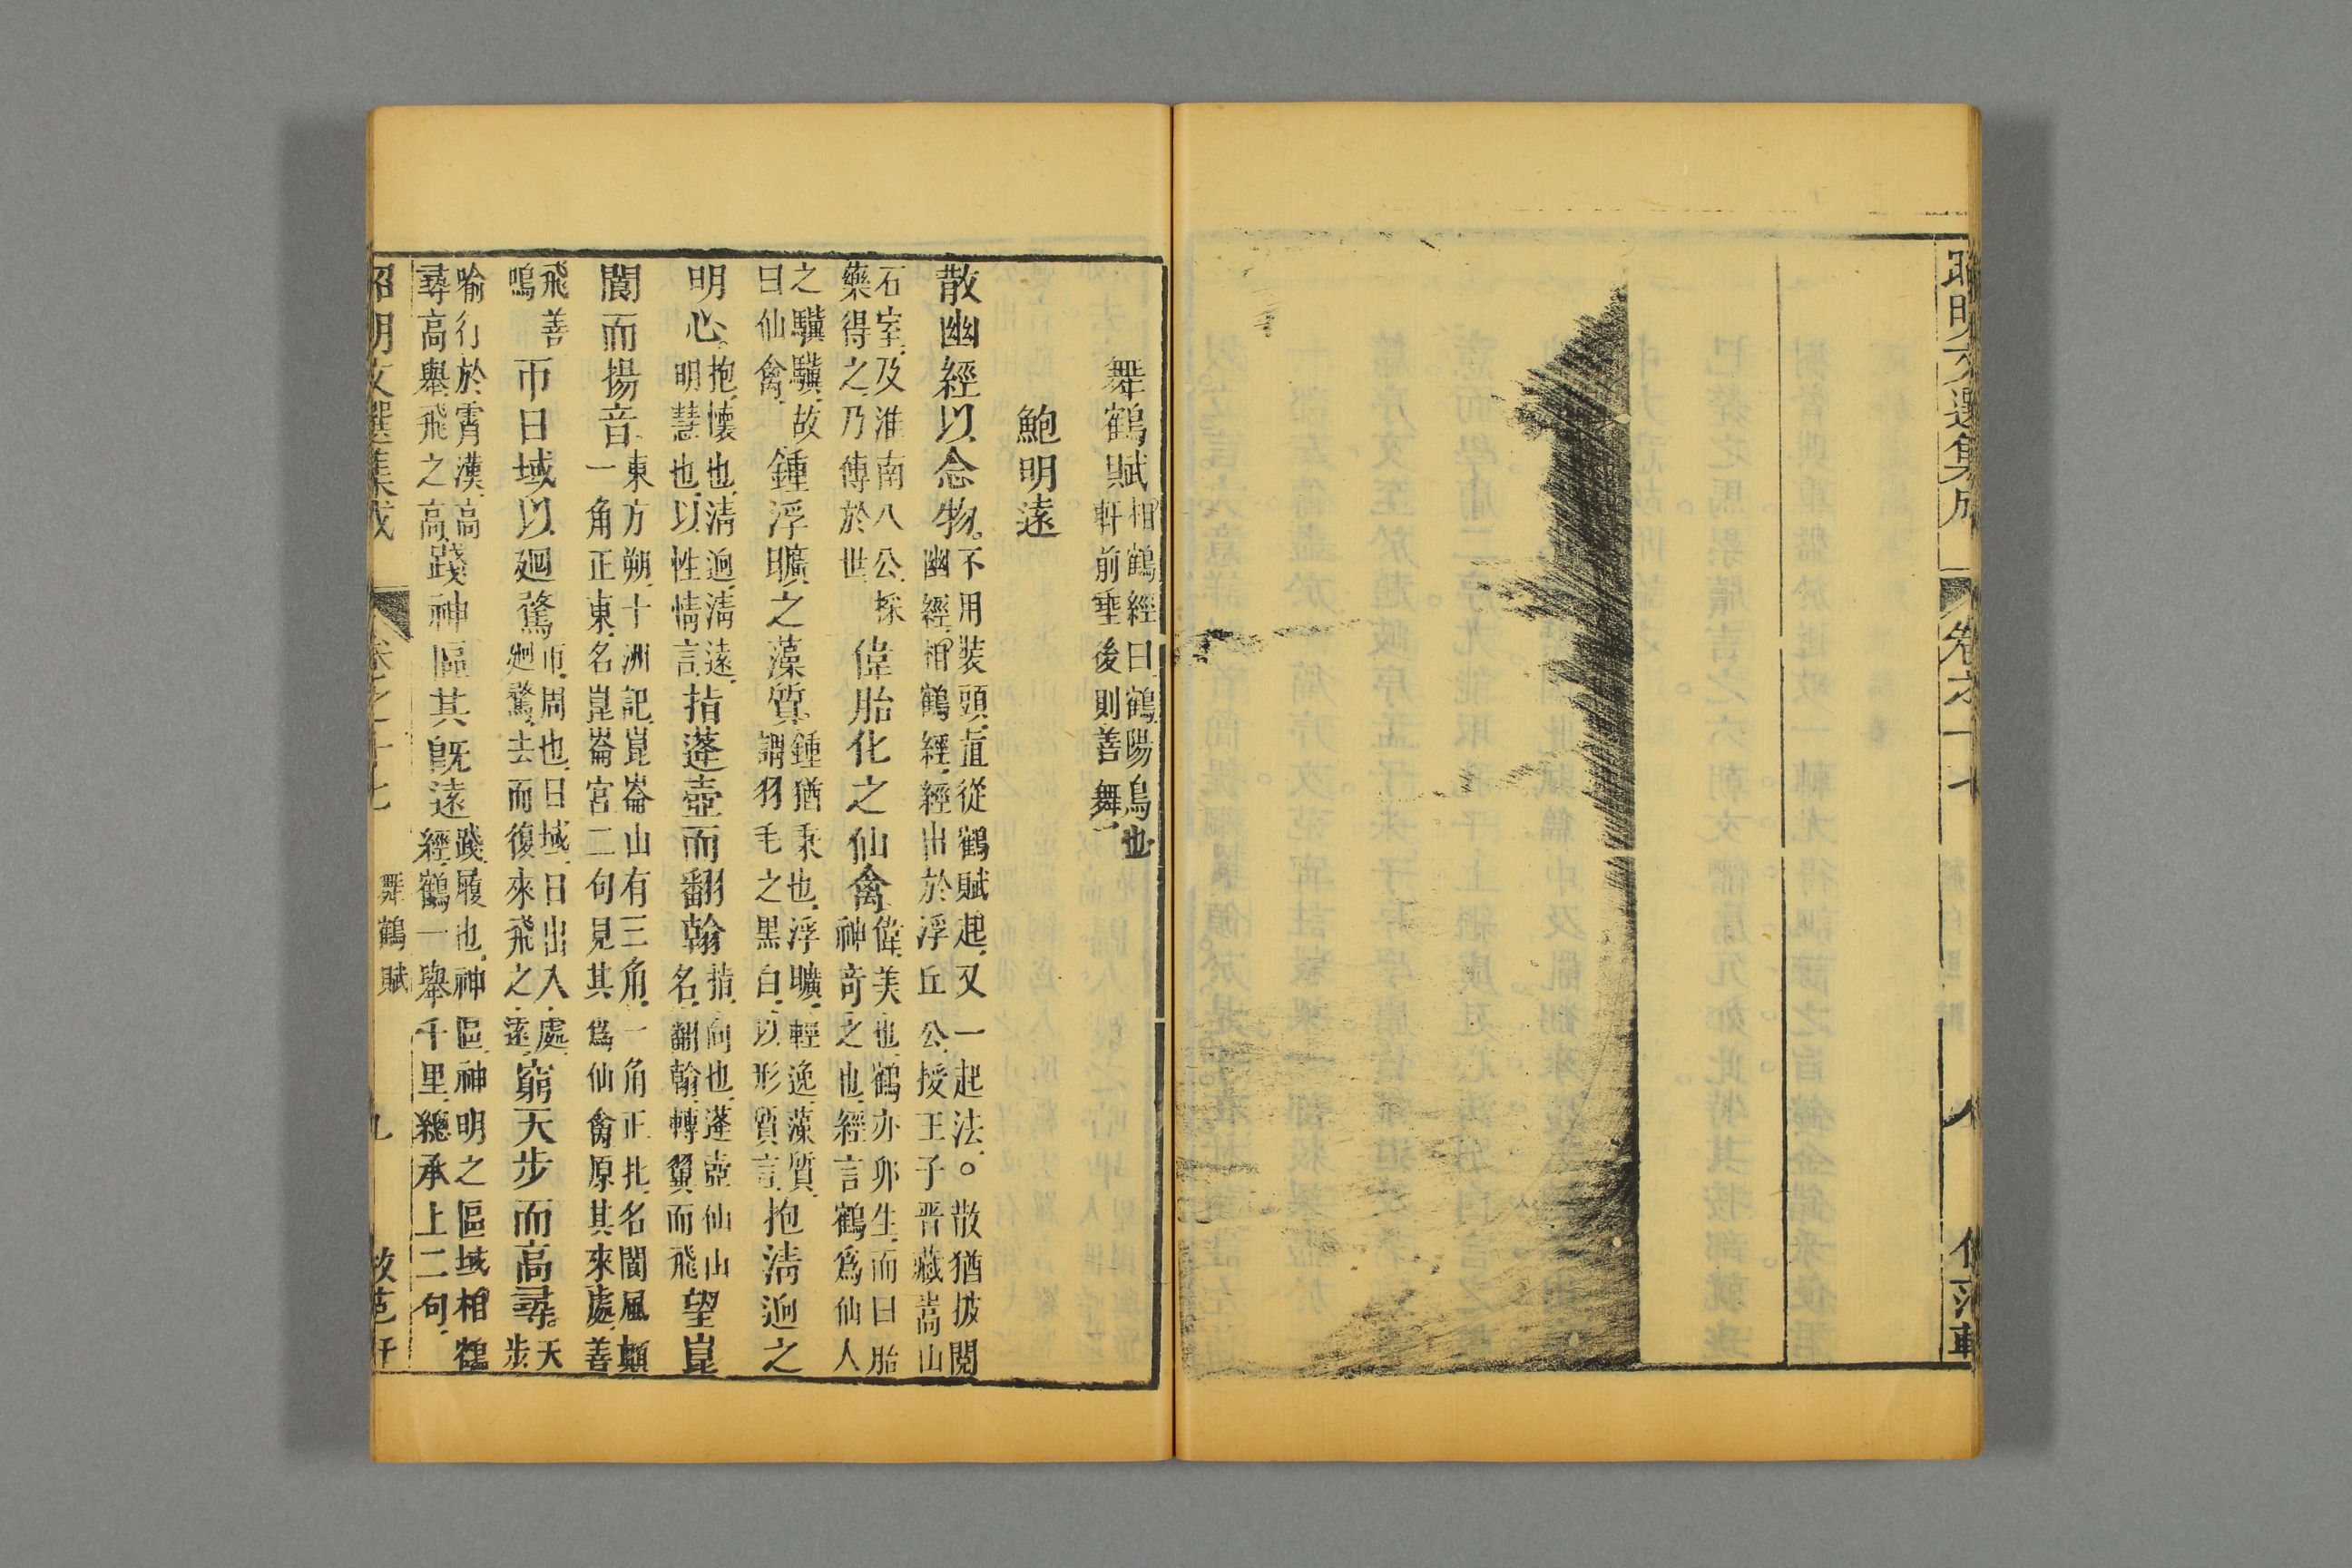 昭明文選集成 卷之十七 八 仿范軒
舞鶴賦相鶴經曰鶴陽鳥也
軒前垂後則善舞
鮑明遠
散幽經以念物不用裝頭直從鶴賦起又一起法○散猶披閱
幽經相鶴經經出於浮丘公授王子晉藏嵩山
石室及淮南八公採
藥得之乃傳於世偉胎化之仙禽偉美也鶴亦卵生而曰胎
神奇之也經言鶴爲仙人
之騏驥故
曰仙禽鍾浮曠之藻質鍾猶秉也浮曠輕逸藻質
謂羽毛之黑白以形質言抱清迥之
明心抱懷也清迥清遠
明慧也以性情言指蓬壺而翻翰指向也蓬壺仙山
名翻翰轉翼而飛望崑
閬而揚音東方朔十洲記崑崙山有三角一角正北名閬風顛
一角正東名崑崙宮二句見其爲仙禽原其來處善
飛善
鳴帀日域以廻驚帀周也日域日出入處
廻驚去而復來飛之遠窮天步而高尋天
步
喻行於霄漢高
尋高舉飛之高踐神區其旣遠踐履也神區神明之區域相鶴
經鶴一舉千里總承上二句
昭明文選集成 卷之十七 舞鶴賦 九 仿范軒